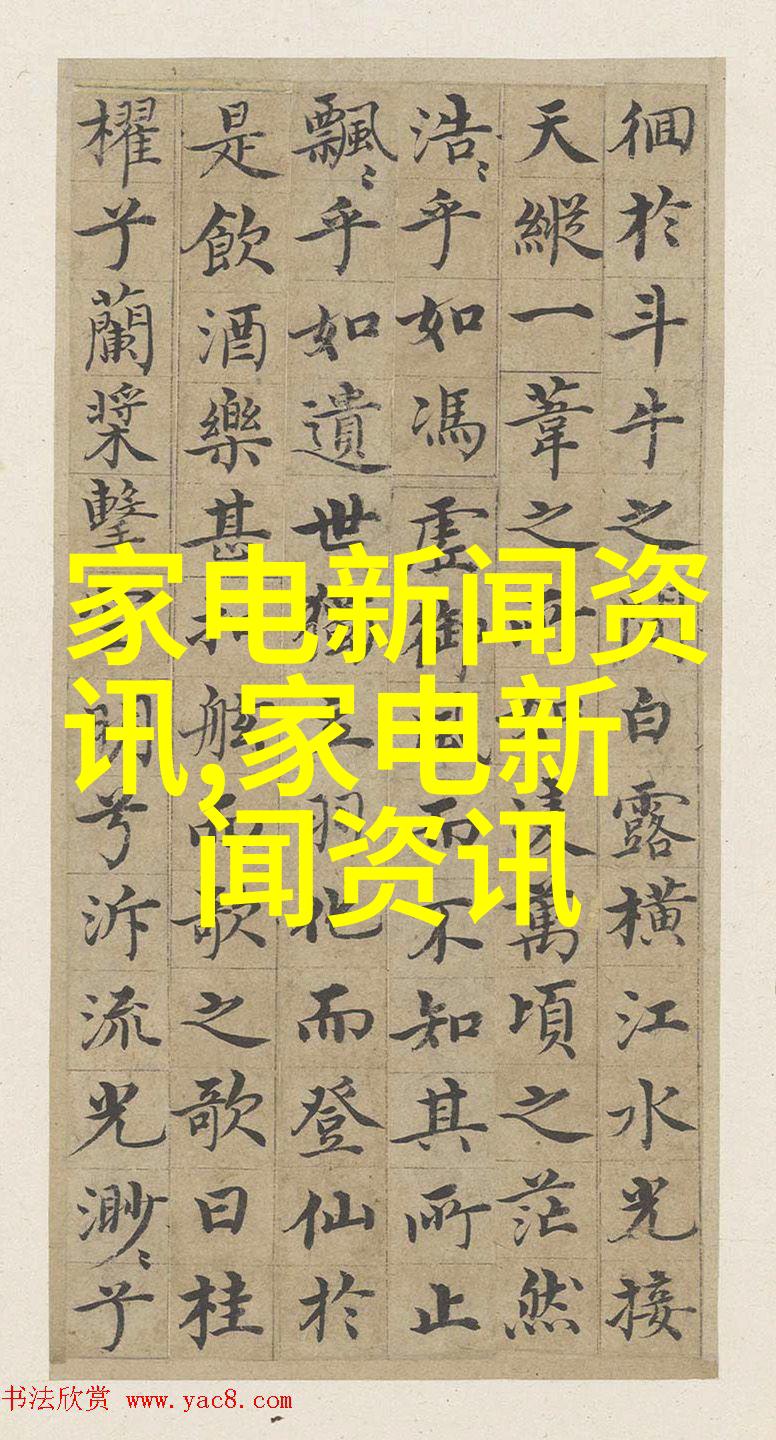 徊於斗牛之間白露橫江水光接
天縱一葦之所如淩萬頃之茫然
浩〻乎如馮虛御風而不知其所止
飄〻乎如遺世獨立羽化而登仙於
是飲酒樂甚扣舷而歌之歌曰桂
櫂兮蘭槳擊空明兮泝流光渺〻兮
家电新闻资
讯,家电新
闻资讯
书法欣赏 www.yac8.com